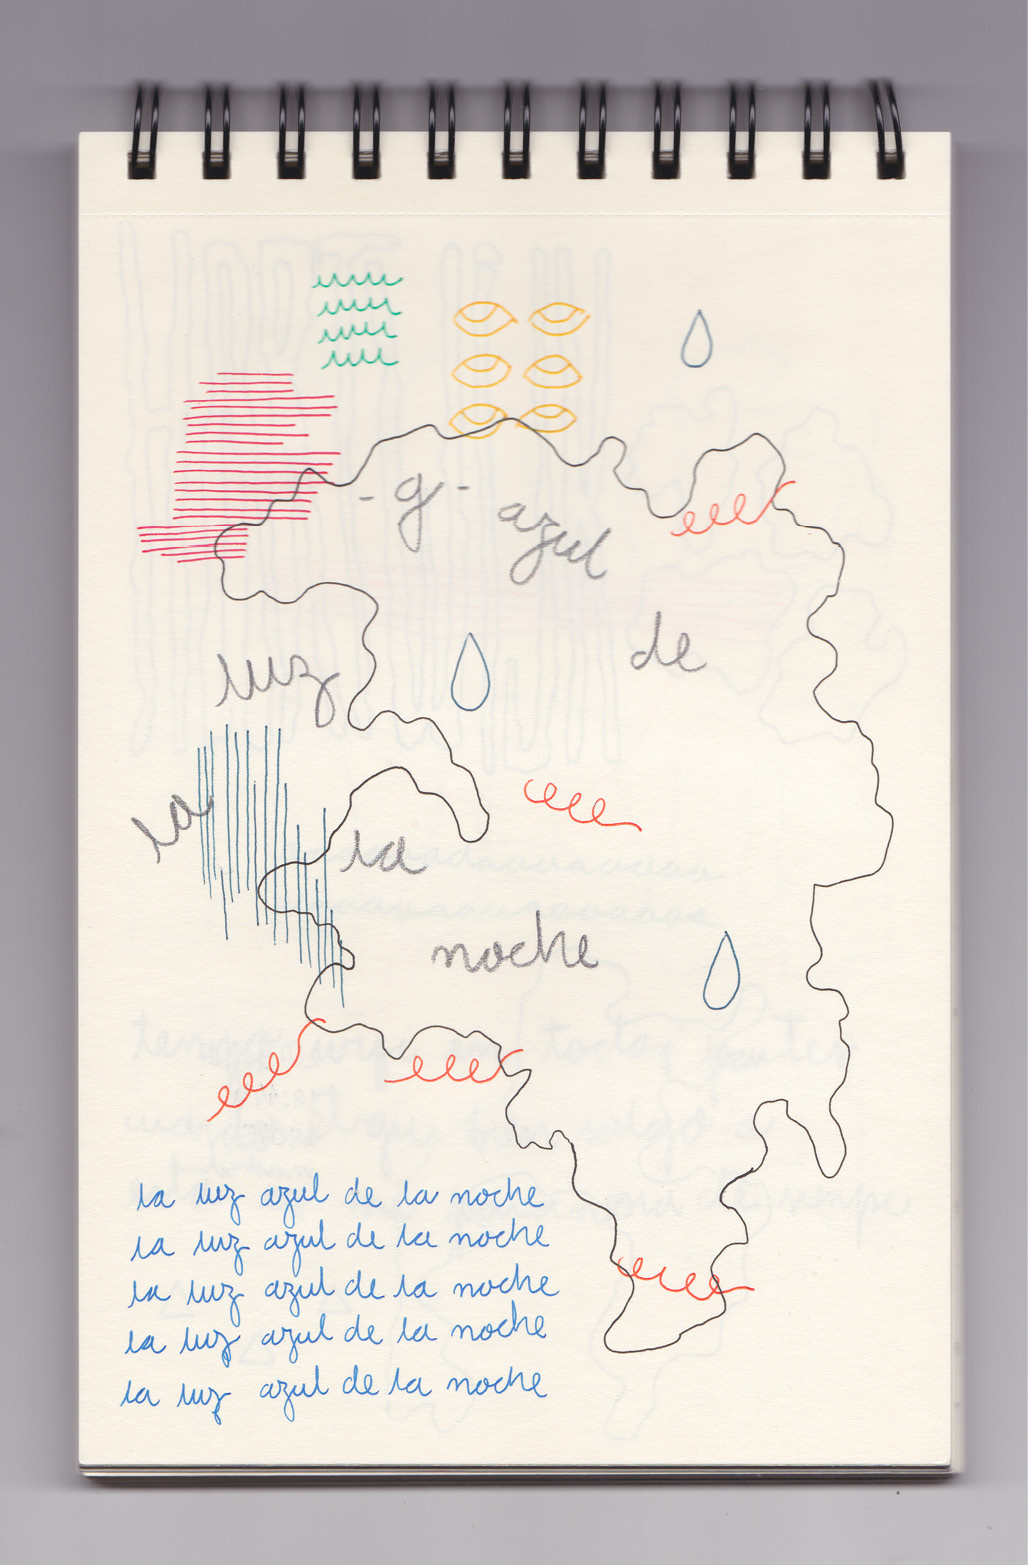 -g-
azul
de
luz
la
la
noche
la luz azul de la noche
la luz azul de la noche
la luz azul de la noche
la luz azul de la noche
la luz azul de la noche